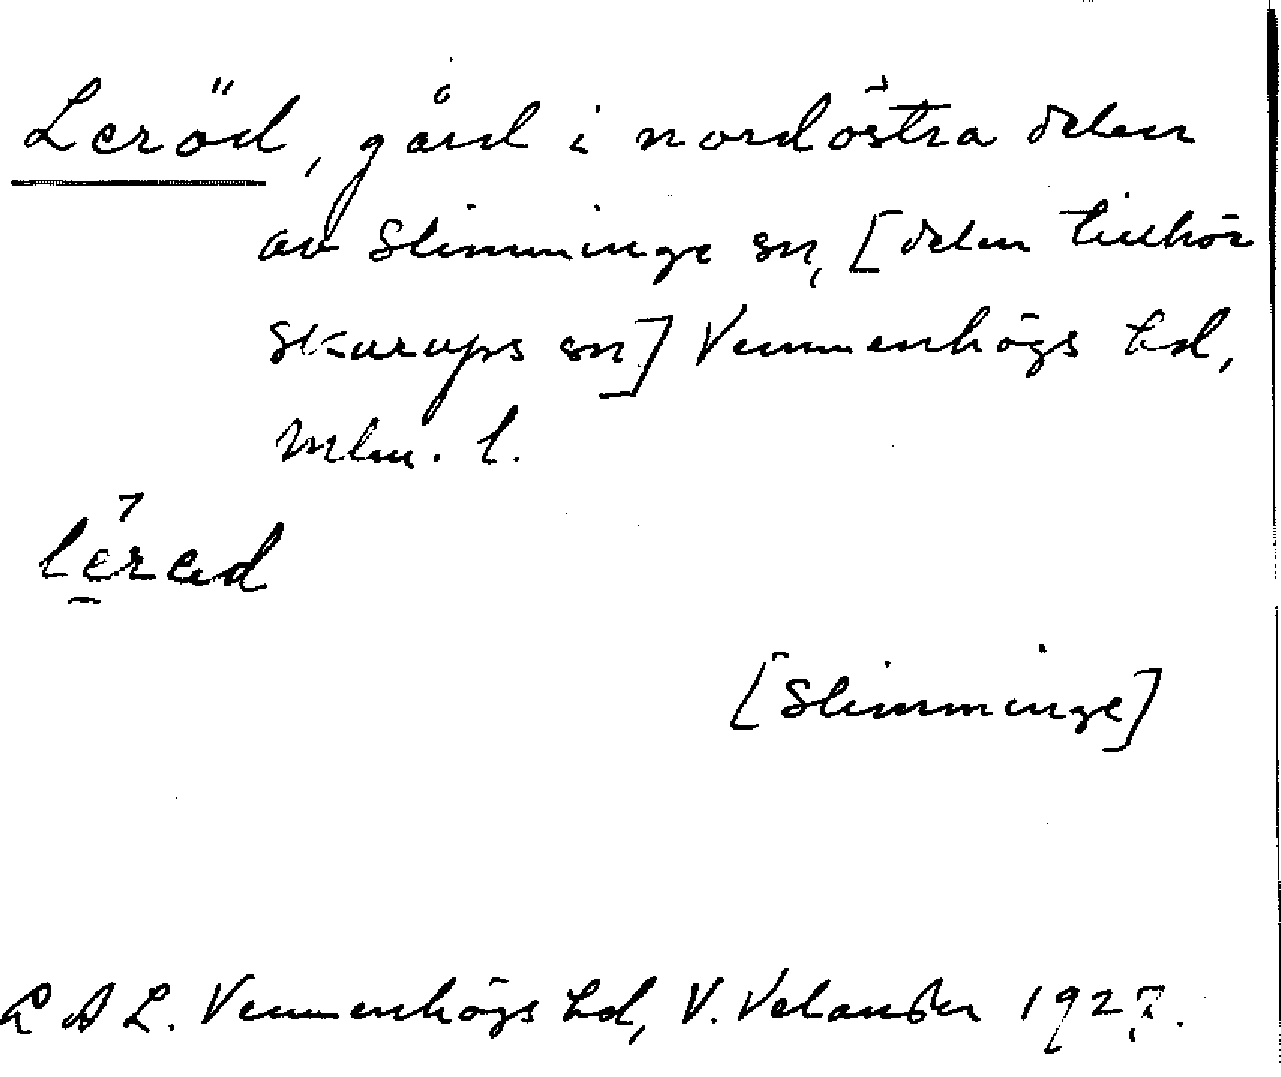 Leröd, gård i nordöstra delen
av Slimminge sn, [delen tillhör
Skurups sn] Vemmenhögs hd,
Mlm. l.
lerad
[Slimminge]
L A L. Vemmenhögs hd, V. Velander 1927.